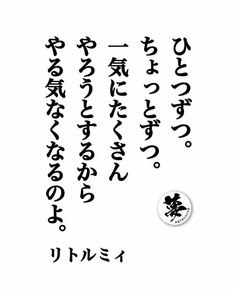 ひとつずつ。
ちょっとずつ。
一気にたくさん
やろうとするから
やる気なくなるのよ。
リトルミィ